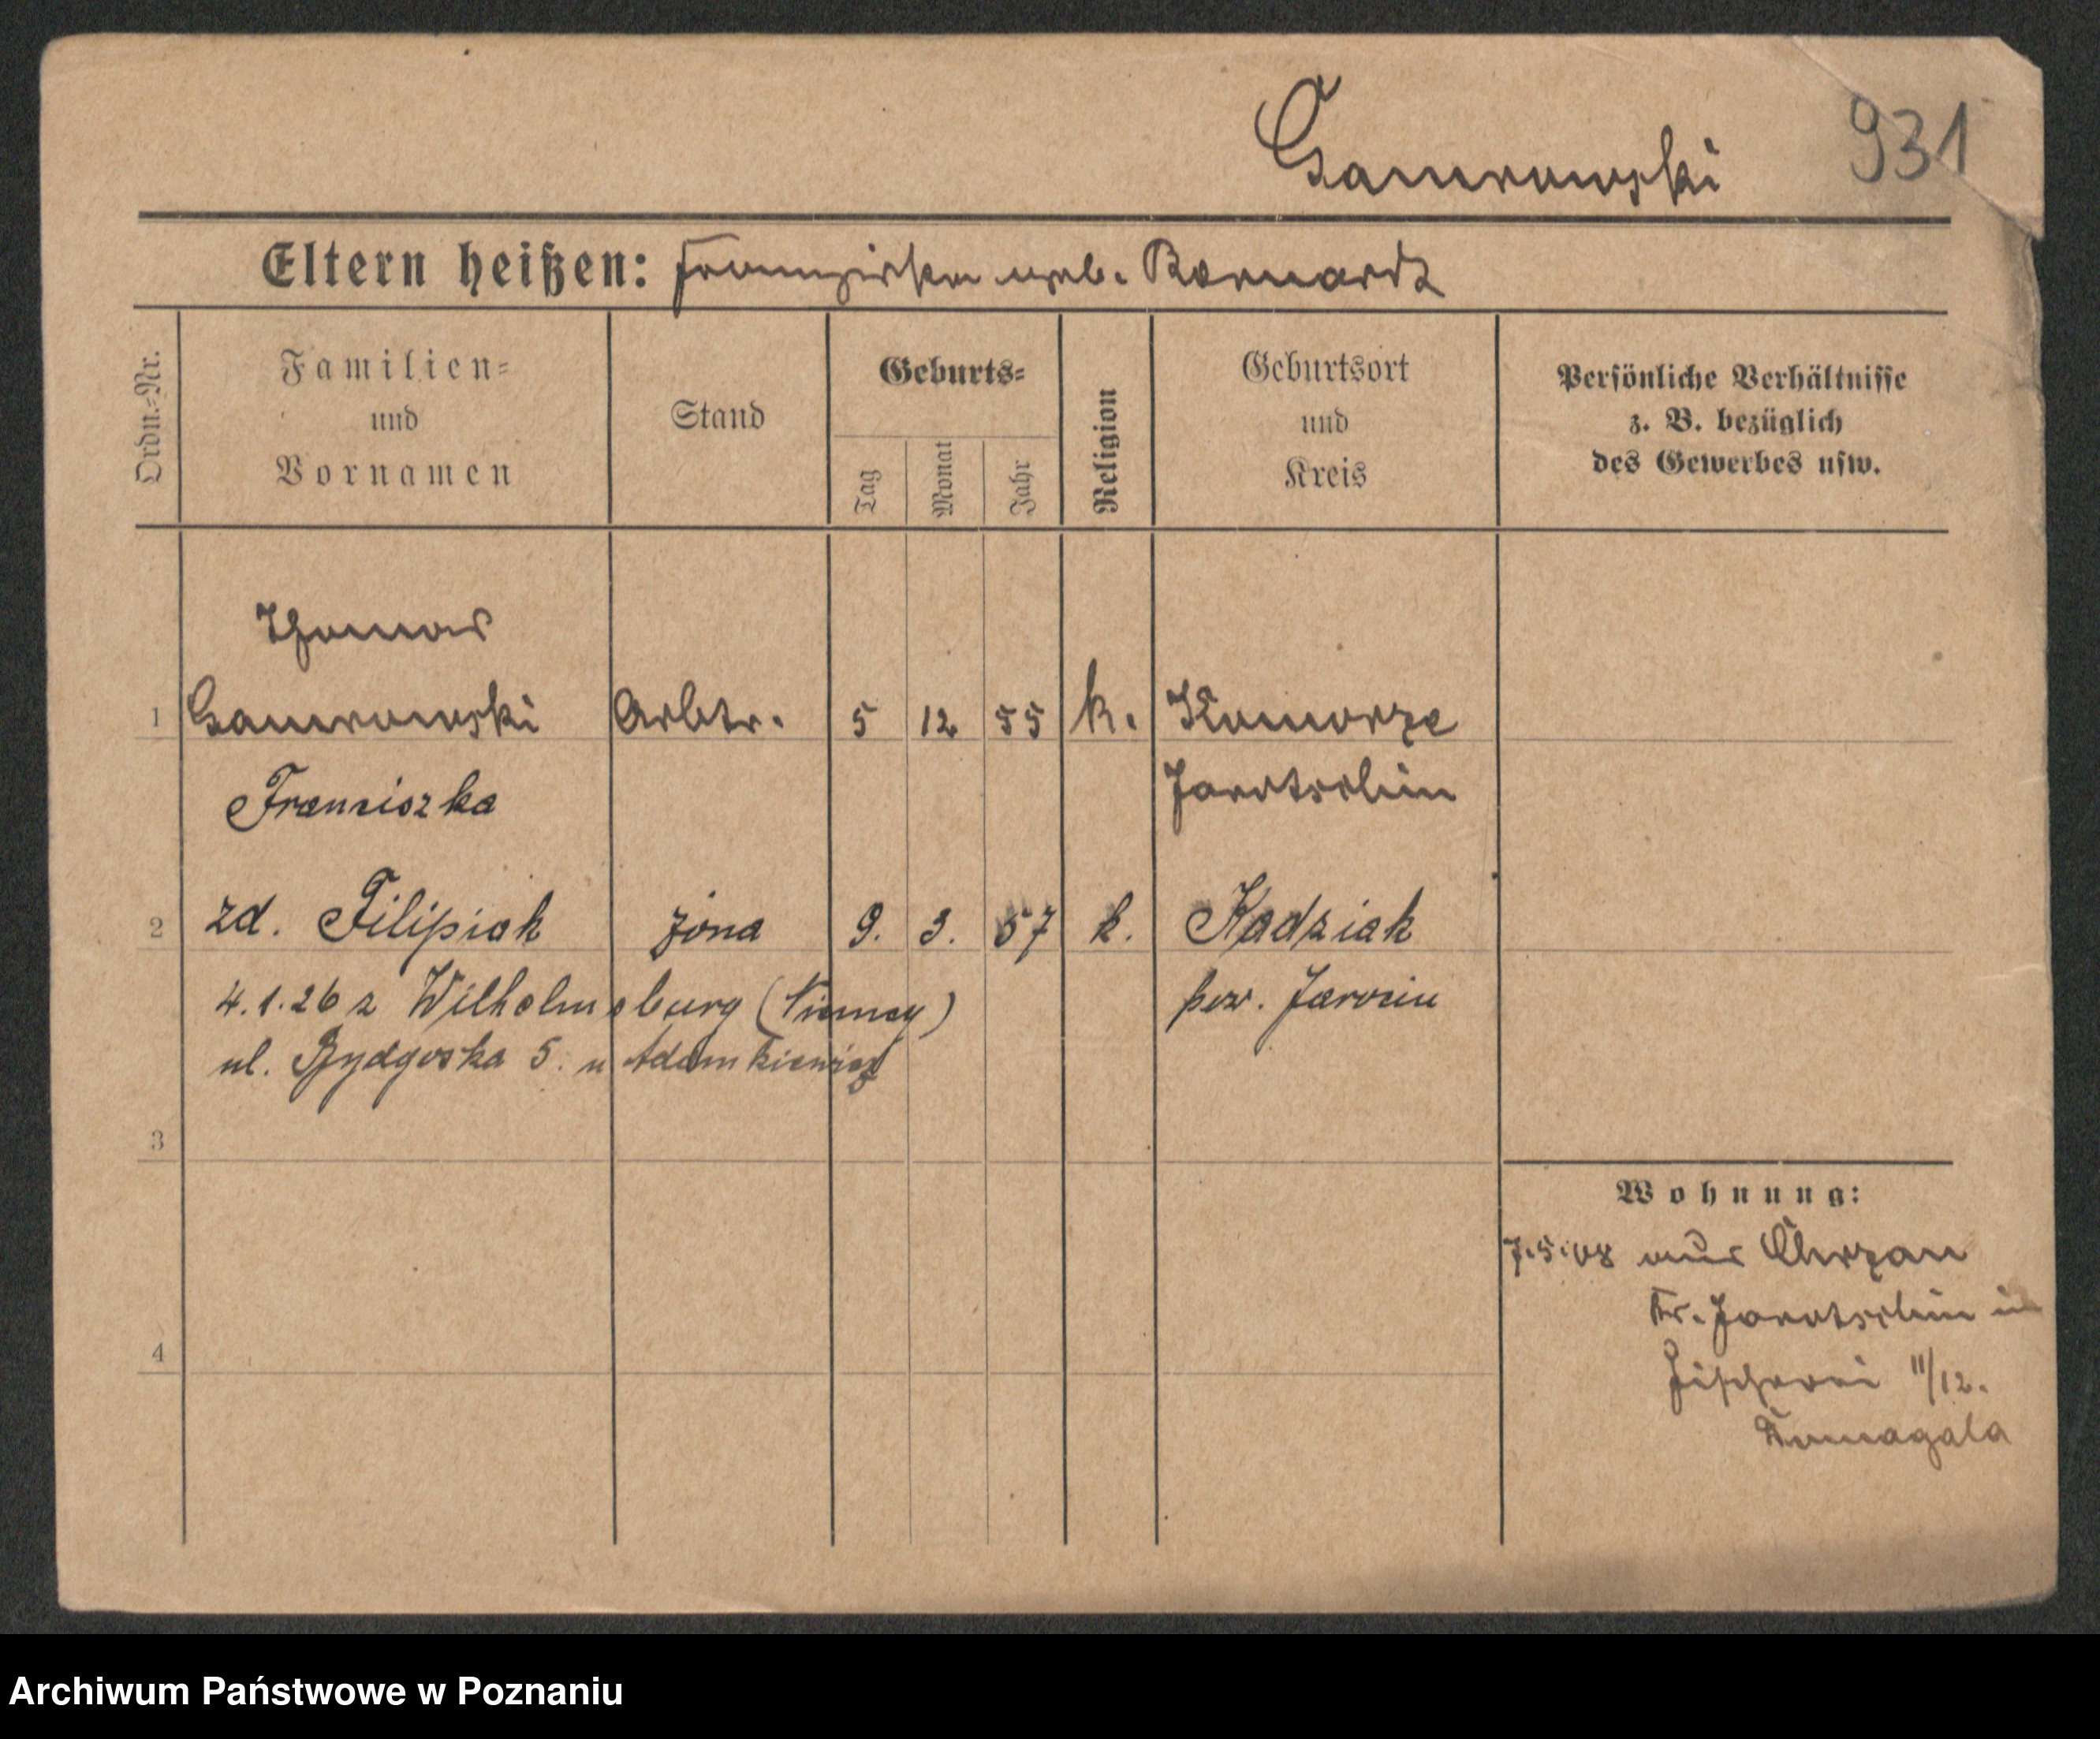 Gamrowski
931
Eltern heißen: Franziska geb. Bernardt
Ordn.-Nr.
Familien-
und
Vornamen
Stand
Geburts-
Tag
Monat
Jahr
Religion
Geburtsort
und
Kreis
Persönliche Verhältnisse
z. B. bezüglich
des Gewerbes usw.
Thomas
1 Gamrowski Arbtr. 5 12 55 k. Komorze
Jarotschin
Franciszka
2 zd. Filipiak żona 9. 3. 57 k. Radziak
pow. Jarocin
4.1.26 z Wilhelmsburg (Niemcy)
ul. Bydgoska 5. u Adamkiewicz
3
4
Wohnung:
7.5.08 aus Chrzan
Kr. Jarotschin in
Fischerei 11/12.
Domagala
Archiwum Państwowe w Poznaniu